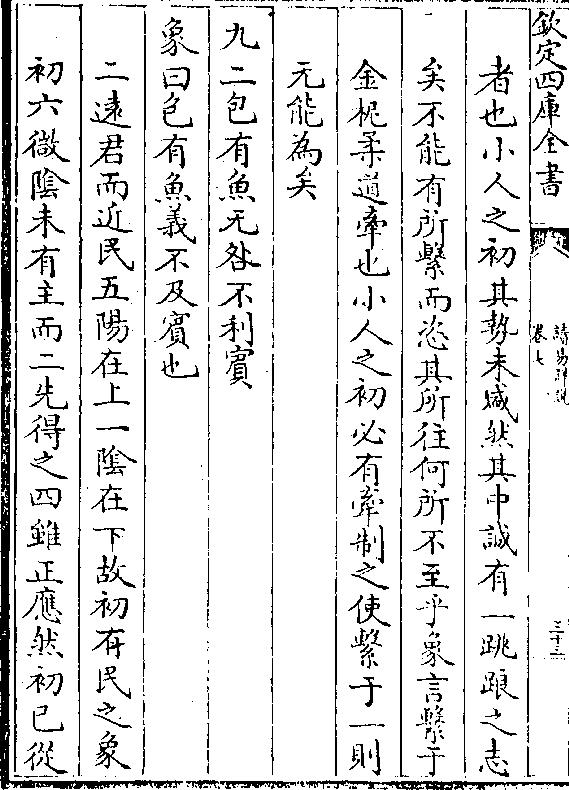 欽定四庫全書
讀易詳說
卷七
三十三
者也小人之初其勢未盛然其中誠有一跳踉之志
矣不能有所繫而恣其所往何所不至乎象言繫于
金柅柔道牽也小人之初必有牽制之使繫于一則
无能為矣
九二包有魚无咎不利賓
象曰包有魚義不及賓也
二遠君而近民五陽在上一陰在下故初有民之象
初六微陰未有主而二先得之四雖正應然初已從